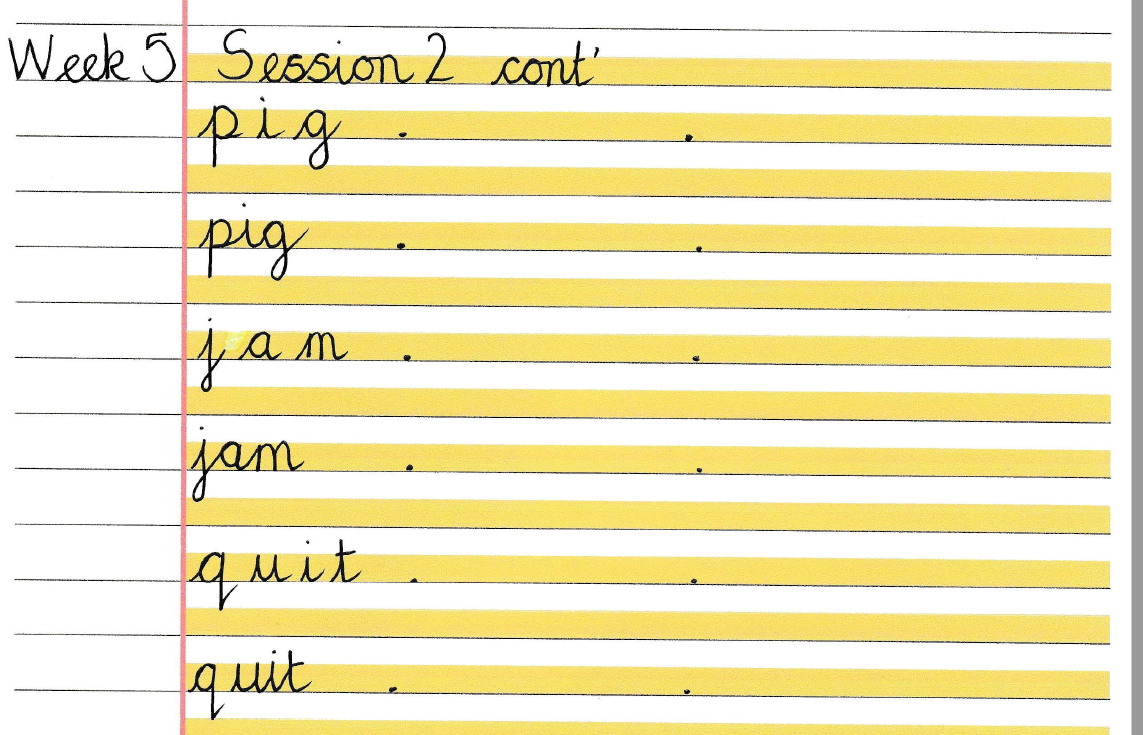 Week 5 Session 2 cont'
p i g . .
pig . .
j a m . .
jam . .
q u i t . .
quit . .